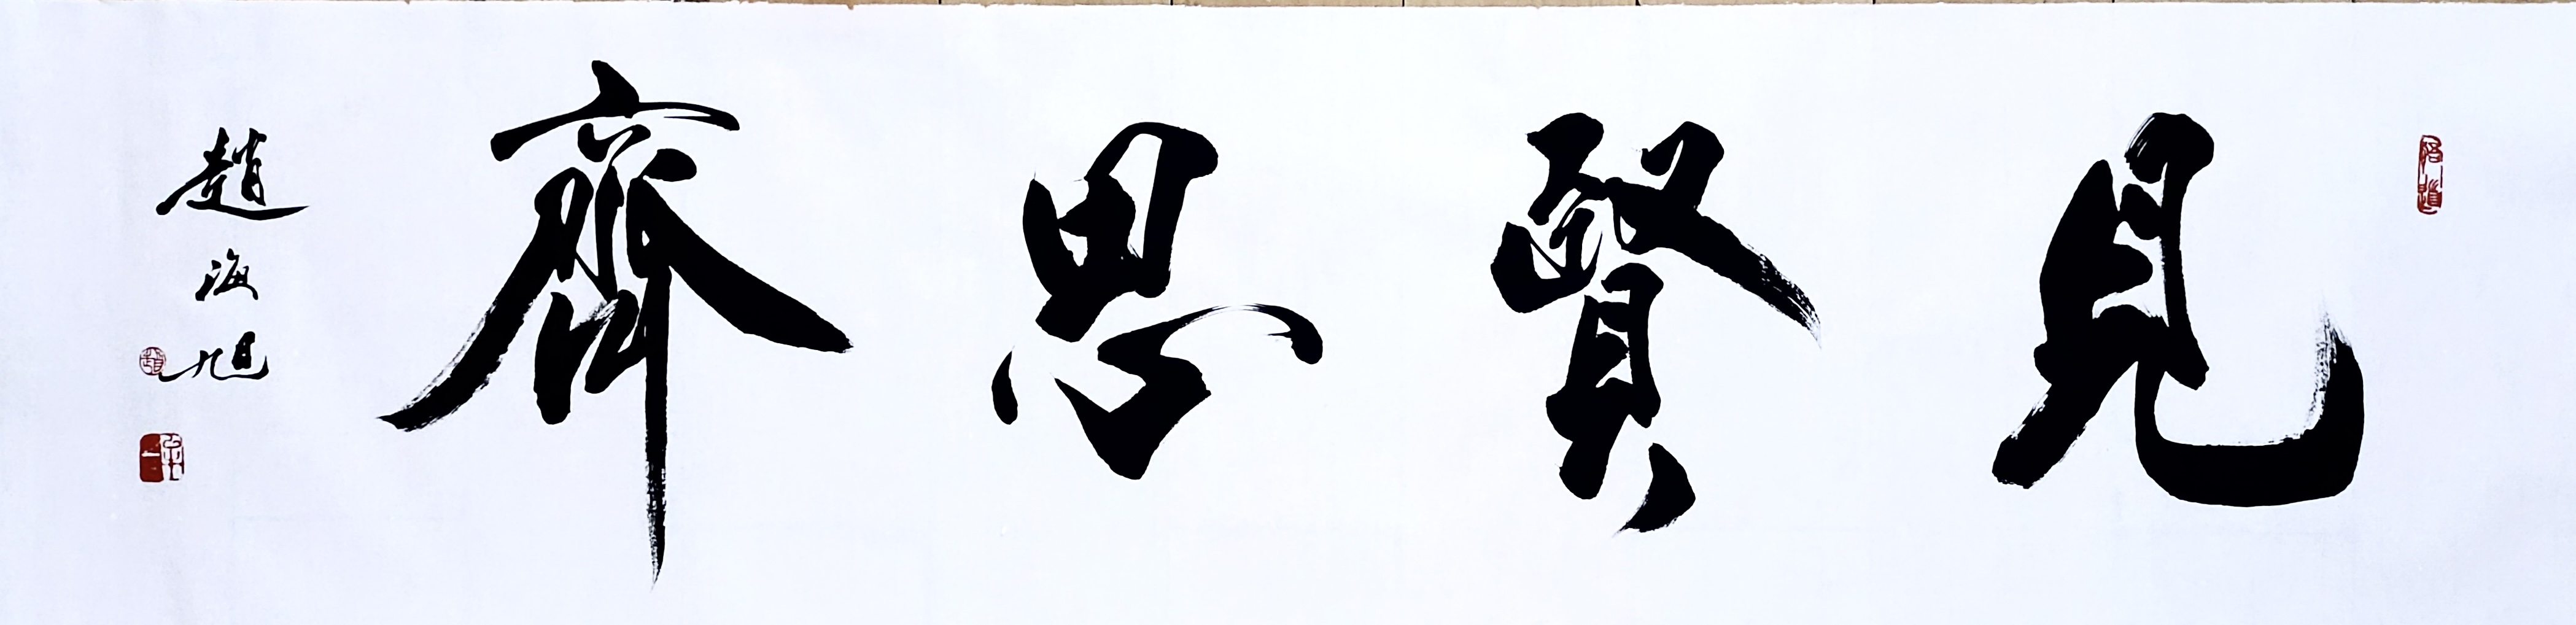 見賢思齊
趙海旭